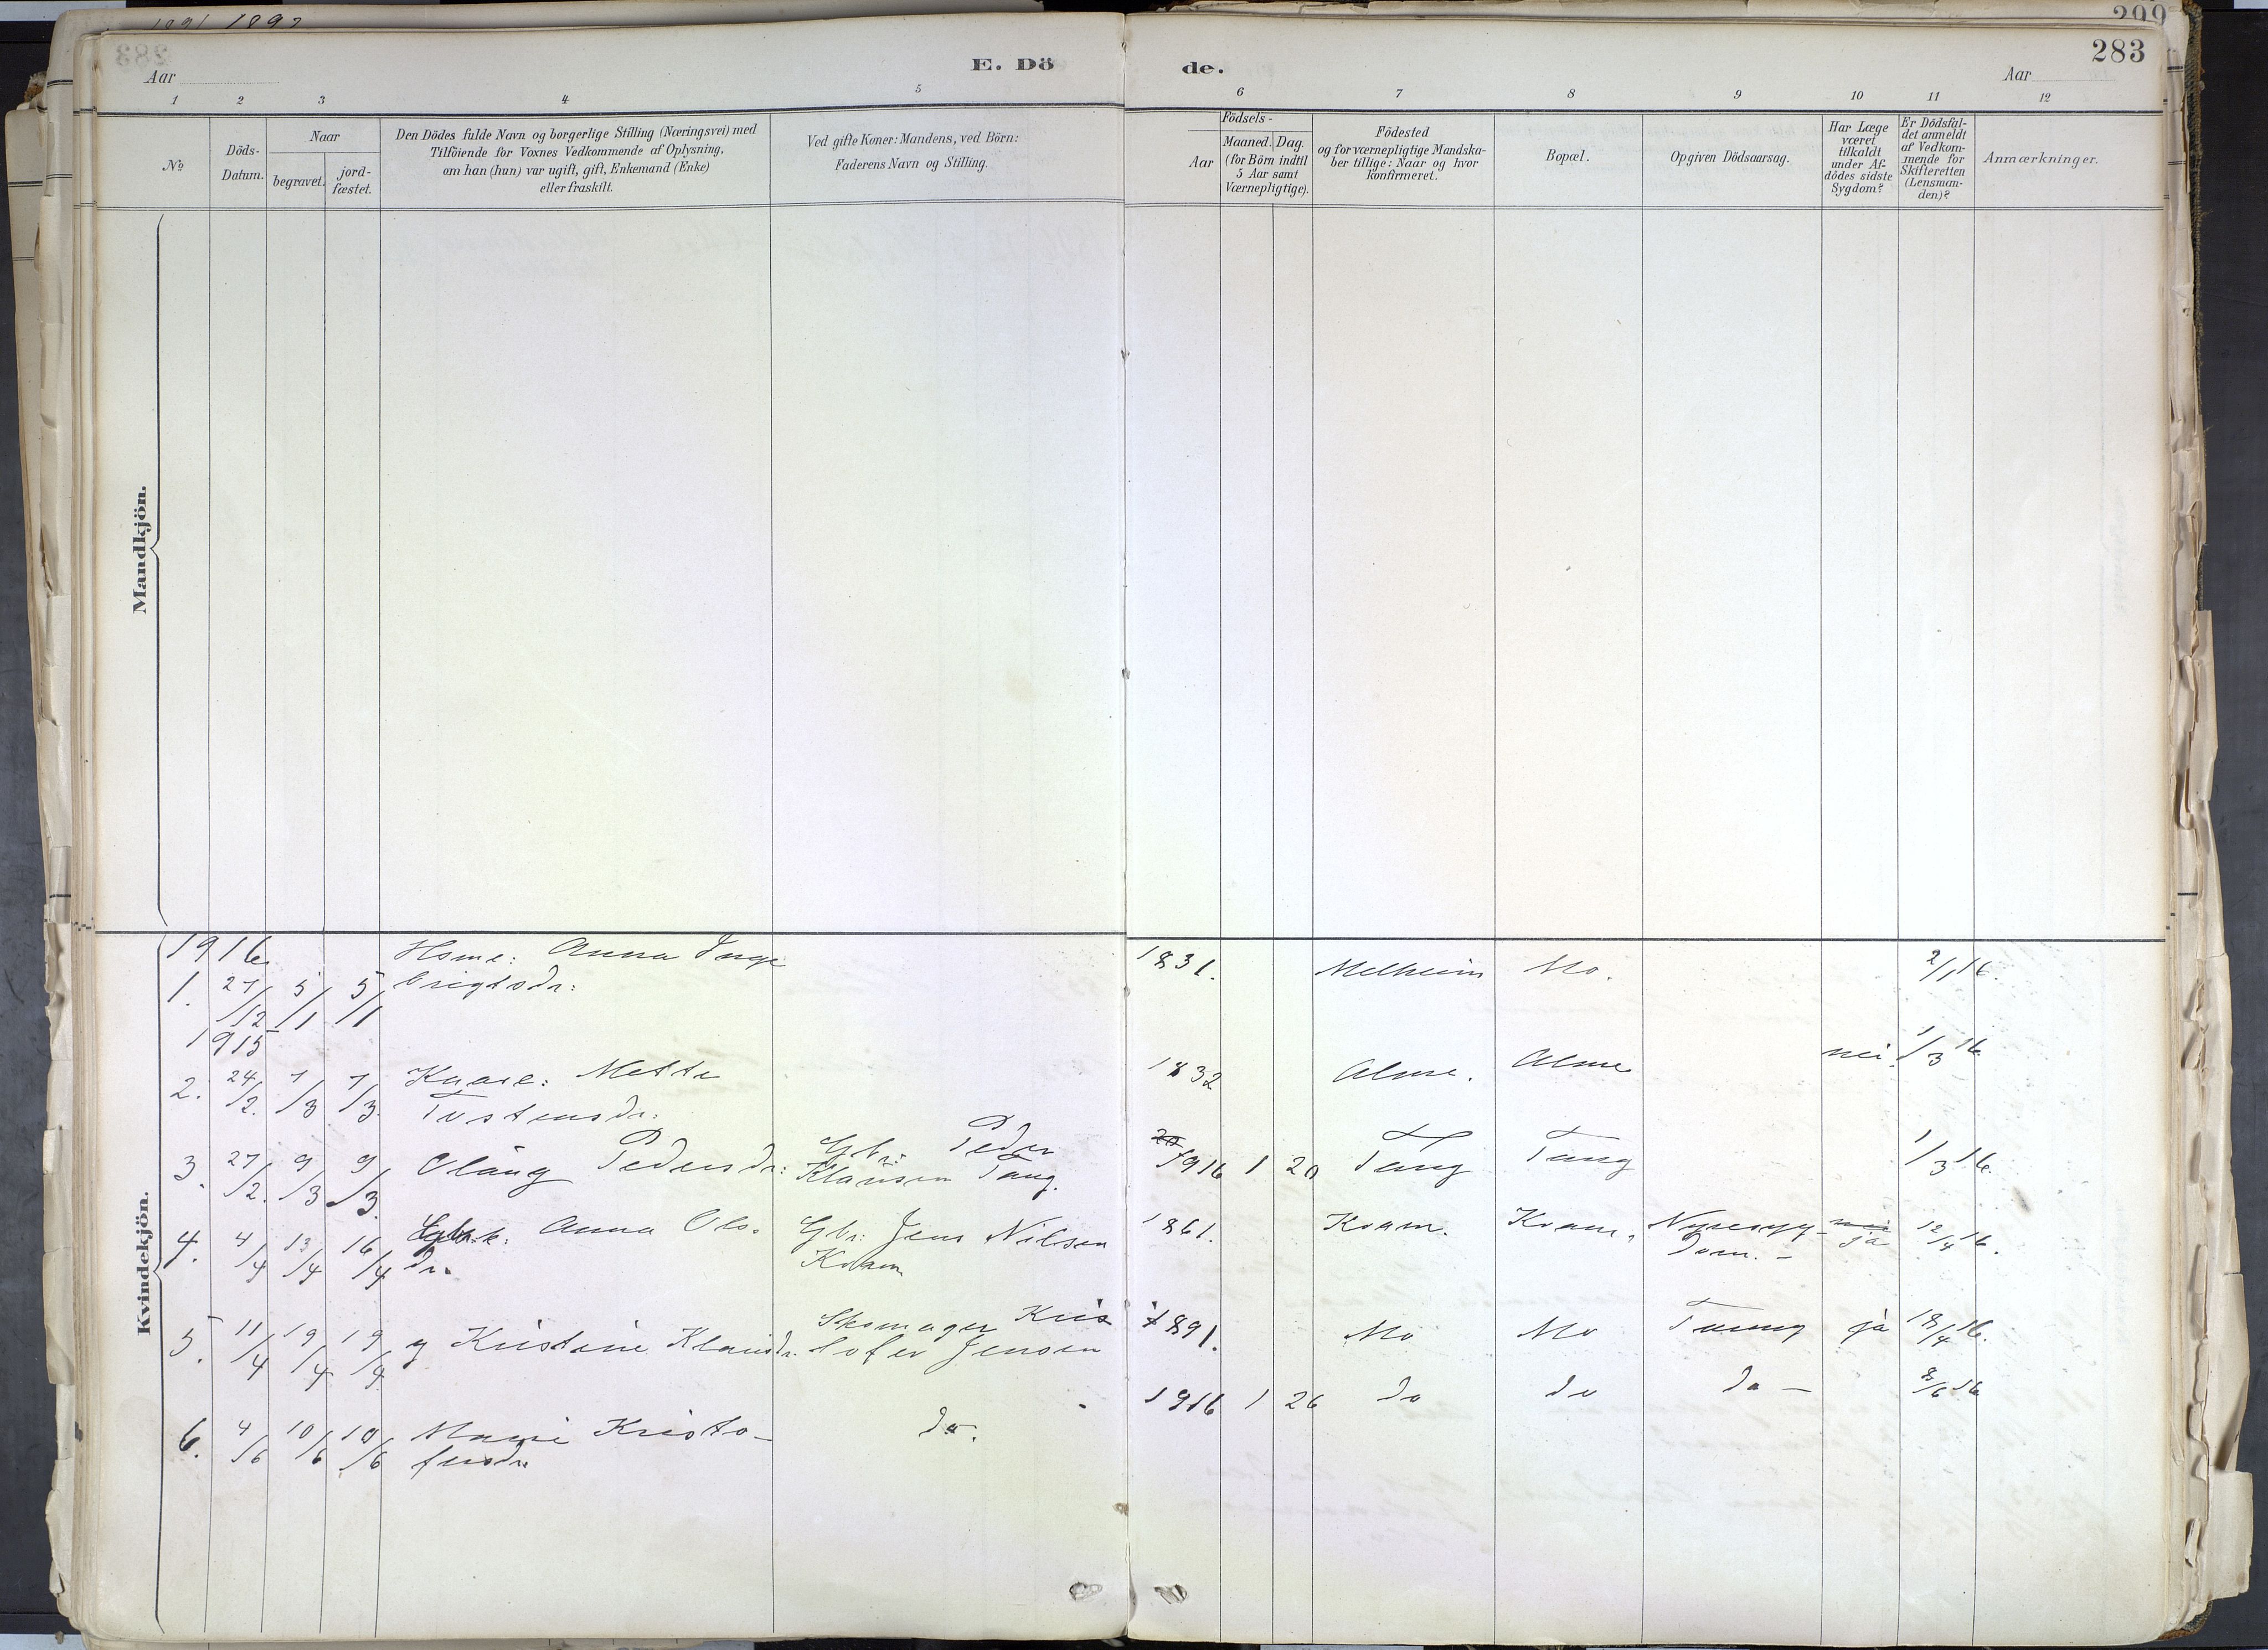 1891 1892
299
283
Aar
E. Dö
de.
Aar
1 2 3 4 5 6 7 8 9 10 11 12
No
Döds-
Datum.
Naar
begravet.
jord-
fæstet.
Den Dödes fulde Navn og borgerlige Stilling (Næringsvei) med
Tilföiende for Voxnes Vedkommende af Oplysning,
om han (hun) var ugift, gift, Enkemand (Enke)
eller fraskilt.
Ved gifte Koner: Mandens, ved Börn:
Faderens Navn og Stilling.
Födsels-
Aar
Maaned. Dag.
(for Börn indtil
5 Aar samt
Værnepligtige).
Födested
og for værnepligtige Mandska-
ber tillige: Naar og hvor
konfirmeret.
Bopæl.
Opgiven Dödsaarsag.
Har Læge
været
tilkaldt
under Af-
dödes sidste
Sygdom?
Er Dödsfal-
det anmeldt
af Vedkom-
mende for
Skifteretten
(Lensman-
den)?
Anmærkninger.
Mandkjön.
Kvindekjön.
1916
1. 27/12 5/1 5/1 Anna Inge 1831. Melheim Mo. 2/1 16.
brigtsdr:
1915
2. 24/2. 7/3 7/3. Mette 1832 Alme. Alme nei. 1/3 16
Tostensdr:
3. 27/2. 9/3 9/3. Oläug Pedersdr: Gbr: Peder 1916 1 20 Tang Tang 1/3 16.
Klausen Tang.
4. 4/4 13/4 16/4 Anna Ols- Gbr: Jens Nilsen 1861. Kvam. Kvam. Nyresyg- nei 12/4 16.
dr. Kvam dom. - ja
5. 11/4 19/4 19/4 g Kristine Klausdr. Skomager Kris 1891. Mo Mo Tæring ja 18/4 16.
tofer Jensen
6. 4/6 10/6 10/6 Marie Kristo- do. 1916 1 26 do do do - 8/6 16
fersdr.